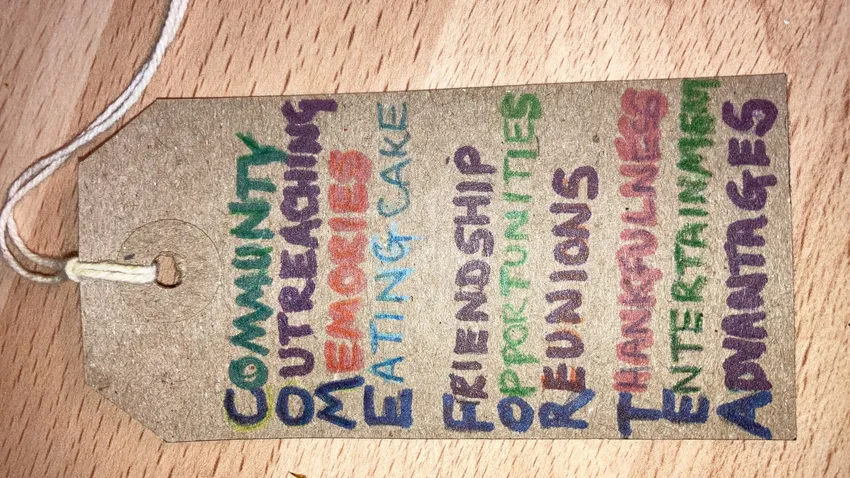 COMMUNTY
OUTREACHING
MEMORIES
EATING CAKE
FRIENDSHIP
OPPORTUNITIES
REUNIONS
THANKFULNESS
ENTERTAINMENT
ADVANTAGES